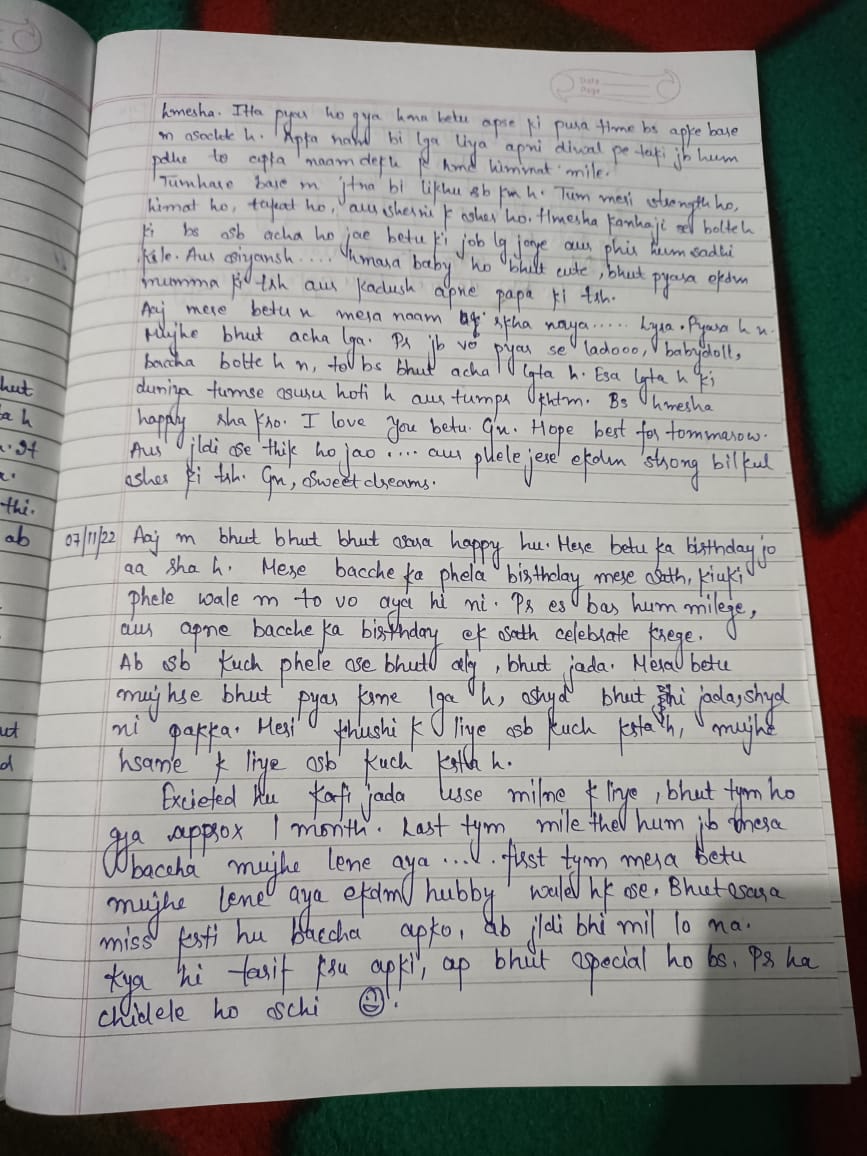 Date
Page
hmesha. Itta pyar ho gya hma betu apse ki pura time bs apke bare
m sochte h. Apka naam bi lga liya apni diwal pe taki jb hum
pdhe to apka naam dekh k hme himmat mile.
Tumhare bare m jtna bi likhu sb km h. Tum meri strength ho,
himat ho, takat ho, aur sherni k sher ho. Hmesha kanhaji se bolteh
ki bs sb acha ho jae betu ki job lg jaye aur phir hum sadhi
krle. Aur siyansh .... hmara baby ho bhut cute, bhut pyara ekdm
mumma ki trh aur kadush apne papa ki trh.
Aaj mere betu n mera naam rkha naya ..... Lyra. Pyara h n.
Mujhe bhut acha lga. Pr jb vo pyar se ladooo, babydoll,
baccha bolte h n, to bs bhut acha lgta h. Esa lgta h ki
duniya tumse suru hoti h aur tumpr khtm. Bs hmesha
happy rha kro. I love you betu. Gn. Hope best for tommarow.
Aur jldi se thik ho jao .... aur phele jese ekdm strong bilkul
sher ki trh. Gn, Sweet dreams.
07/11/22 Aaj m bhut bhut bhut sara happy hu. Mere betu ka birthday jo
aa rha h. Mere bacche ka phela birthday mere sath, kiuki
phele wale m to vo aya hi ni. Pr es bar hum milege,
aur apne bacche ka birthday ek sath celebrate krege.
Ab sb kuch phele se bhut alg, bhut jada. Mera betu
mujhse bhut pyar krne lga h, shyd bhut hi jada, shyd
ni pakka. Meri khushi k liye sb kuch krta h, mujhe
hsane k liye sb kuch krta h.
Excieted hu kafi jada usse milne k liye, bhut tym ho
gya approx 1 month. Last tym mile the hum jb mera
baccha mujhe lene aya .... first tym mera betu
mujhe lene aya ekdm hubby wale hk se. Bhut sara
miss krti hu baccha apko, ab jldi bhi mil lo na.
Kya hi tarif kru apki, ap bhut special ho bs. Pr ha
chidele ho schi ☺.
hut
a h
thi.
ab
ut
d